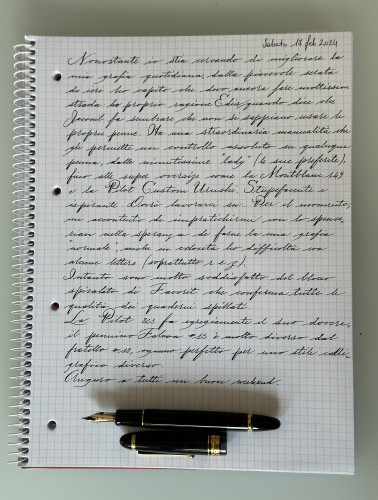 Sabato 17 feb 2024
Nonostante io stia cercando di migliorare la
mia grafia quotidiana, dalla piacevole serata
di ieri ho capito che devo ancora fare moltissima
strada. ha proprio ragione Edis quando dice che
fa sembrare che non si sappiano usare le
proprie penne. Ha una straordinaria manualità che
gli permette un controllo assoluto su qualunque
penna, dalle minutissime "lady" (le sue preferite),
fino alle super oversize come la Montblanc 149
e la Pilot Custom Urushi. Stupefacente e
ispirante. Dovrò lavorarci su. Per il momento,
mi accontento di impratichirmi con lo spence-
rian nella speranza di farne la mia grafia
"normale", anche in velocità ho difficoltà con
alcune lettere (soprattutto r e z).
Intanto sono molto soddisfatto del blocco
spiralato di Favorit che conferma tutte le
qualità dei quaderni spillati.
La Pilot 823 fa egregiamente il suo dovere,
il pennino Falcon #15 è molto diverso dal
fratello #10, ognuno perfetto per uno stile calli-
grafico diverso.
Auguro a tutti un buon weekend.